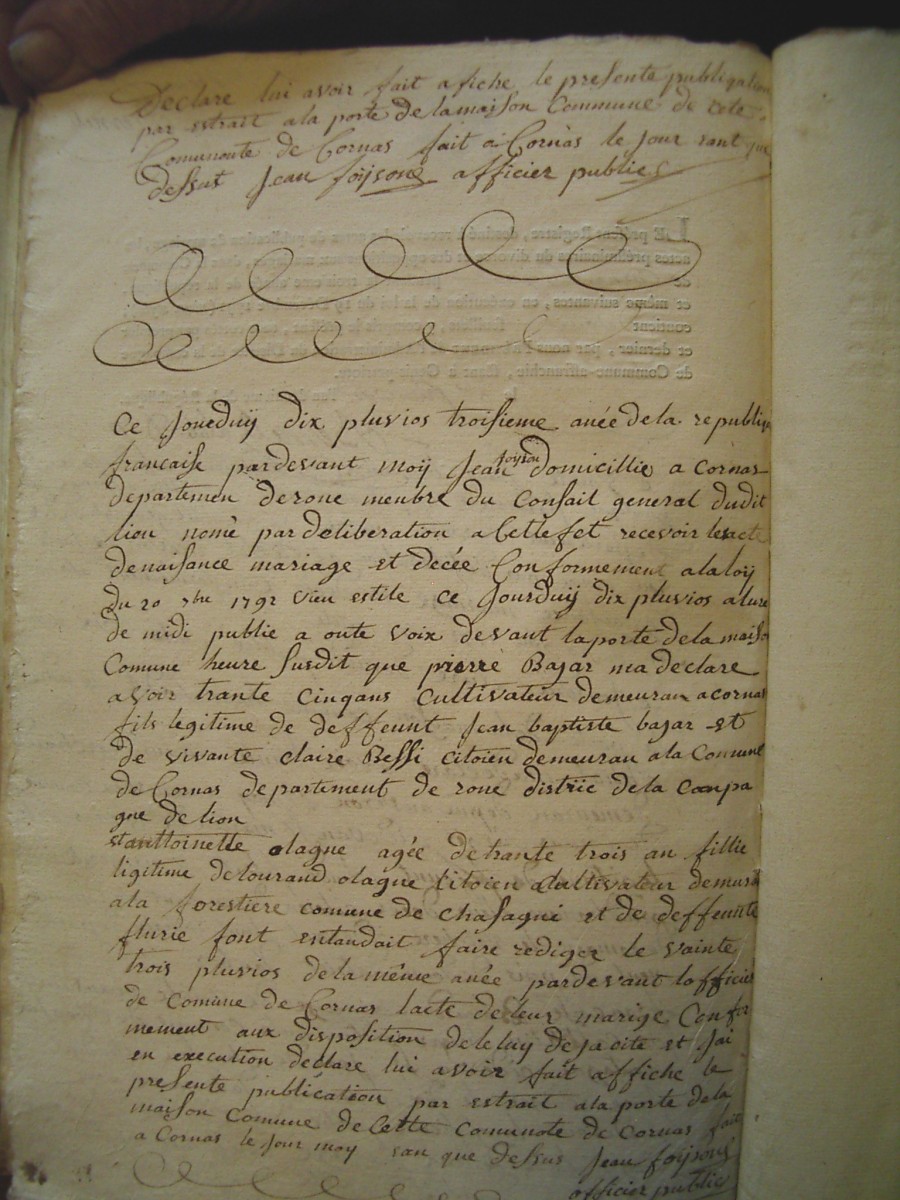 Declare lui avoir fait afiche le presente publiqation
par estrait a la porte de la maison Commune de cete
Comunoute de Cornas fait a Cornas le Jour sant que
dessus Jean foijsone afficier publies
Ce Jourduÿ dix pluvios troisieme anée de la republique
francaise pardevant moÿ Jean foysoi Domicillie a Cornas
departemen de rone menbre du Consail general dudit
lion nomè par deliberation a Cettefet recevoir lesacte
de naisance mariage et decée Conformement a la loy
du 20 7bre 1792 vieu estile Ce Jourduÿ dix pluvios a lure
de midi publie a oute voix devant la porte de la maison
Comune heure susdit que pierre Bajar ma declare
avoir trante Cinq ans Cultivateur demeuran a cornas
fils legitime de deffeunt Jean baptiste bajar et
de vivante claire Bessi Citoien demeuran a la Comune
de Cornas departement de rone distric de la Canpa
gne de lion
et anttoinette olagne agée de trante trois an fillie
ligitime de tourand olagne Citoien Cultivateur demeurà
a la forestiere comune de Chasagne et de deffeunte
flurie font entandait faire rediger le vainte
trois pluvios de la même anée pardevant lofficier
de Comune de Cornas lacte de leur marige Confor
mement aux disposition de le luy de ja cite et Jai
en execution declare lui avoir fait affiche le
presente publication par estrait a la porte de la
maison Comune de Cette Comunote de Cornas fait
a Cornas le Jour moy san que dessus Jean foijsone
officier publie